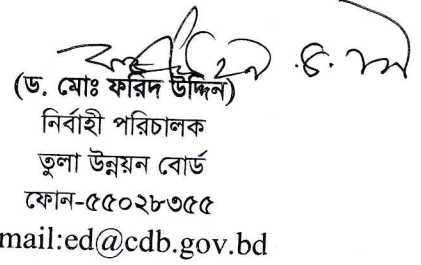 (ড. মোঃ ফরিদ উদ্দিন)
নির্বাহী পরিচালক
তুলা উন্নয়ন বোর্ড
ফোন-৫৫০২৮৩৫৫
mail:ed@cdb.gov.bd